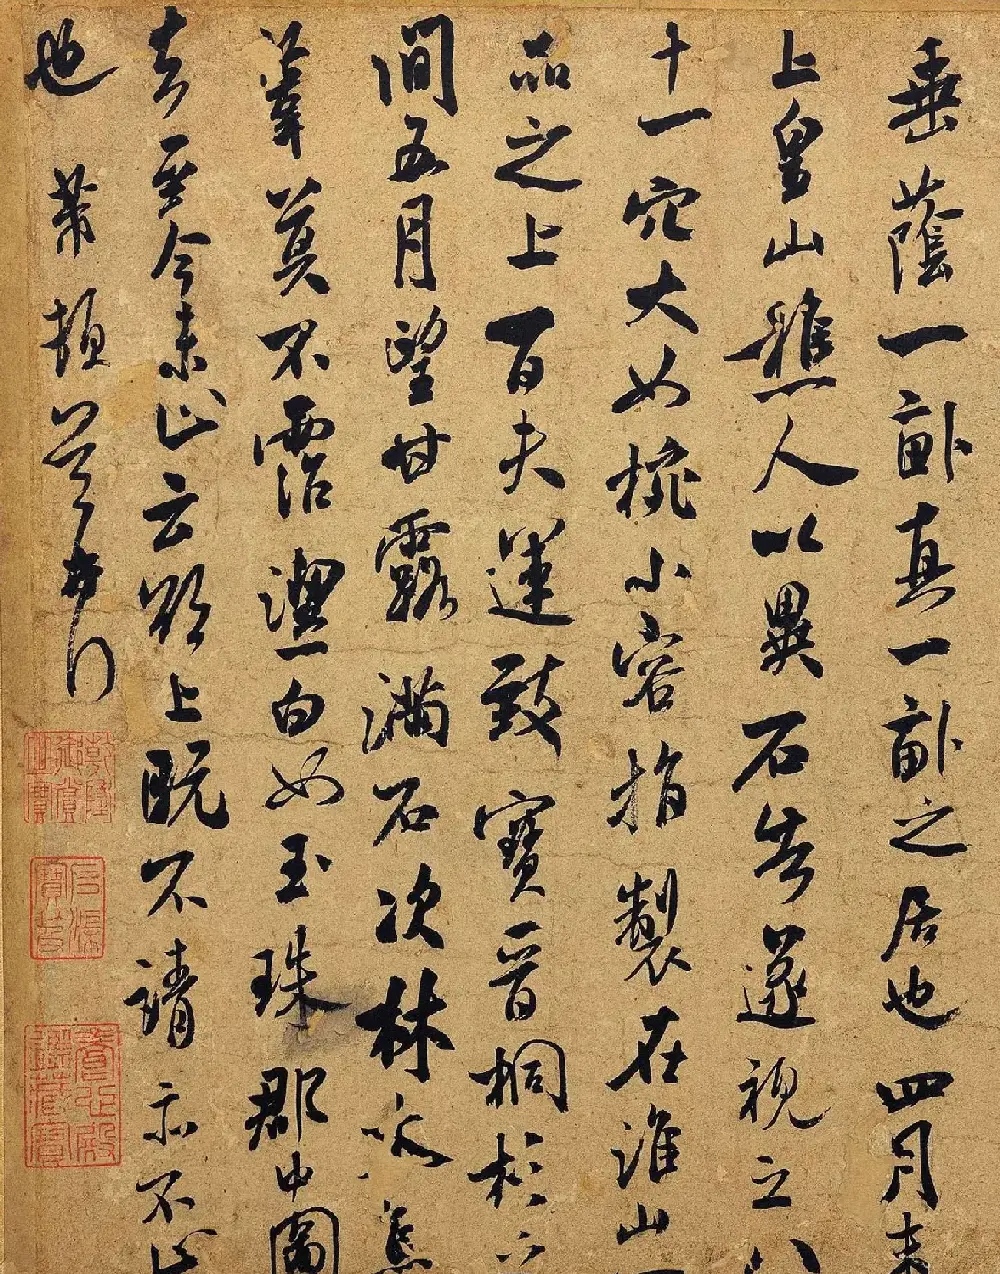 垂蔭一畝真一畝之居也四月末
上皇山樵人以異石告遂視之八
十一穴大如椀小容指製在淮山一
品之上百夫運致寶晉桐杉之
間五月望甘露滿石次林木焦
葦莫不霑潔白如玉珠郡中圖
去至今未止云欲上既不請亦不止
也 芾頓首再拜
石渠寶笈
養心殿鑑藏寶